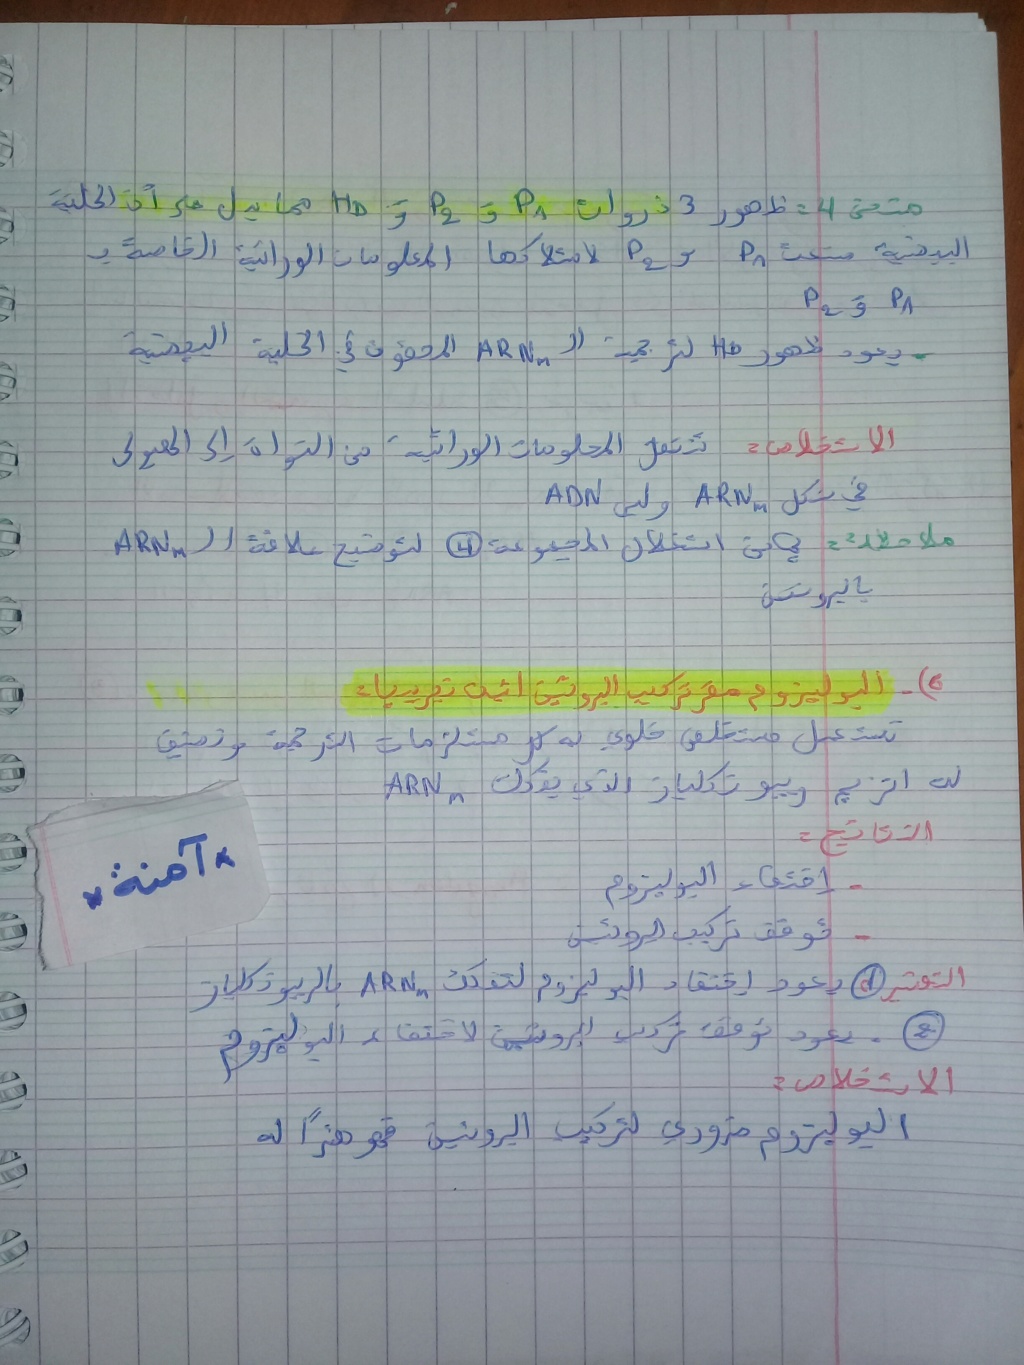 منحنى 4: ظهور 3 ذروات P1 و P2 و Hb مما يدل على أن الخلية
البيضية صنعت P1 و P2 لامتلاكها المعلومات الوراثية الخاصة بـ
P1 و P2
- يعود ظهور Hb لترجمة الـ ARNm المحقون في الخلية البيضية
الاستخلاص: تنتقل المعلومات الوراثية من النواة إلى الهيولى
في شكل ARNm وليس ADN
ملاحظة: يمكن استغلال المجموعة 4 لتوضيح علاقة الـ ARNm
بالبروتين
6)- البوليزوم مقر تركيب البروتين اثبت تجريبيا:
نستعمل مستخلص خلوي به كل مستلزمات الترجمة ونضيف
له انزيم ريبونكلياز الذي يفكك ARNm
النتائج:
- إختفاء البوليزوم
- توقف تركيب البروتين
التفسير 1 يعود إختفاء البوليزوم لتفكك ARNm بالريبونكلياز
2 - يعود توقف تركيب البروتين لاختفاء البوليزوم
الاستخلاص:
البوليزوم ضروري لتركيب البروتين فهو مقرًا له
* آمنة *